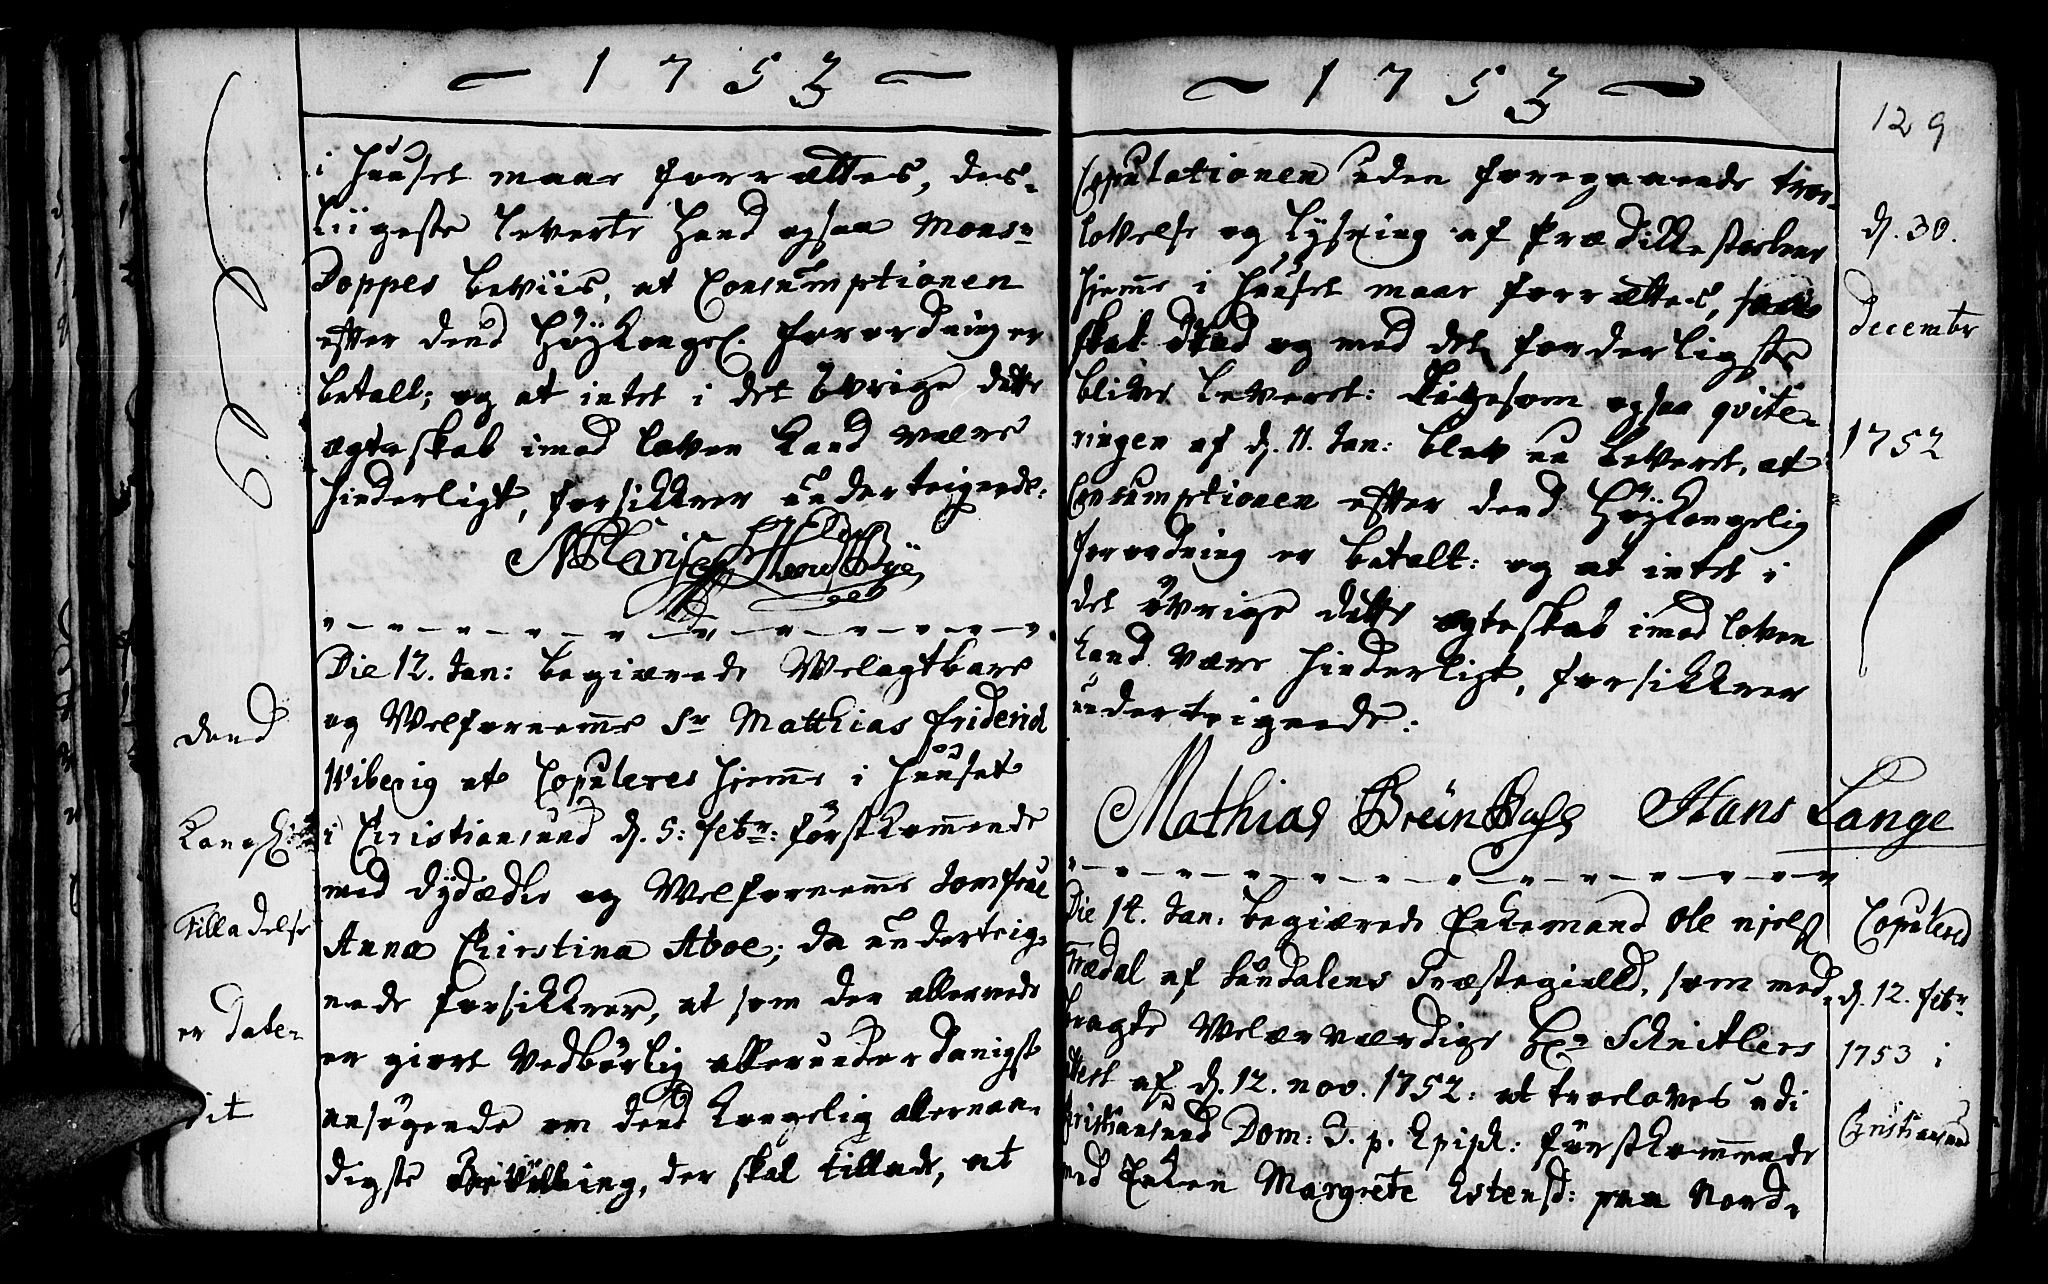 1753
i Huuset maae forrættes, des-
liigeste leverte hand ogsaa Monsr
Doppes beviis, at Consumptionen
efter dend Høÿkongel. forordning er
betalt; og at intet i det øvrige dette
ægteskab imod loven kand være
hinderligt, forsikkrer undertegnede:
Die 12. Jan: begiærede Welagtbare
og Welfornemme Sr Matthias friderich
Wiberig at Copuleres hjemme i Huuset
i Christiansund d. 5: febr: førstkommende
med dÿdædle og Welfornemme Jomfrue
Anna Christina Aboe; da underteig-
nede forsikkrer, at som der allerede
er giort vedbørlig allerunderdanigst
ansøgende om dend kongelig allernaa-
digste Bevilling, der skal tillade, at
dend
Kongl:
Tilladelse
er date-
rit
1753
129
Copulationen uden foregaaende troe-
lovelse og lysning af Prædikkestoelene
hjemme i Huuset maae forrættes, saa
skal dend og med det forderligste
blive leveret: Ligesom ogsaa qvite-
ringen af d. 11. Jan: blev nu leveret, at
Consumptionen efter dend Høÿkongelig
forordning er betalt: og at intet i
det øvrige dette ægteskab imod loven
kand være hinderligt, forsikkrer
undertegnede:
Mathias Brün Buss Hans Lange
d. 30.
Decembr
1752
Die 14. Jan: begiærede Enkemand Ole Njels
Trædal af Sundalens Præstegield, som med-
bragte Welærværdige Hr Schnitlers
attest af d. 12. nov. 1752: at troeloves udi
Christiansund Dom: 3. p. Epiph: førstkommende
med Enken Margrete Estensd: paa Nord-
Copulered
d. 12. febr
1753 i
Christiansund